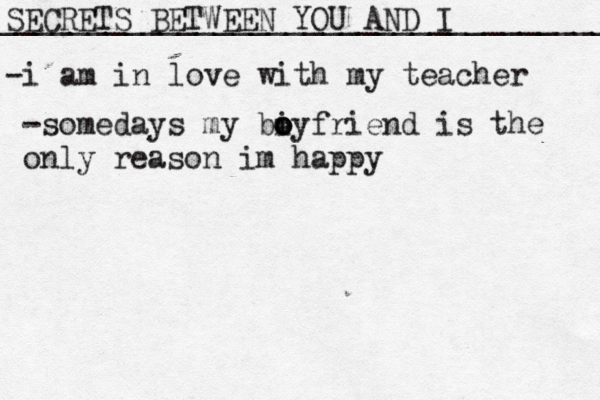 SECRETS BETWEEN YOU AND I
-i am in love with my teacher
-somedays my boyfriend is the
only reason im happy